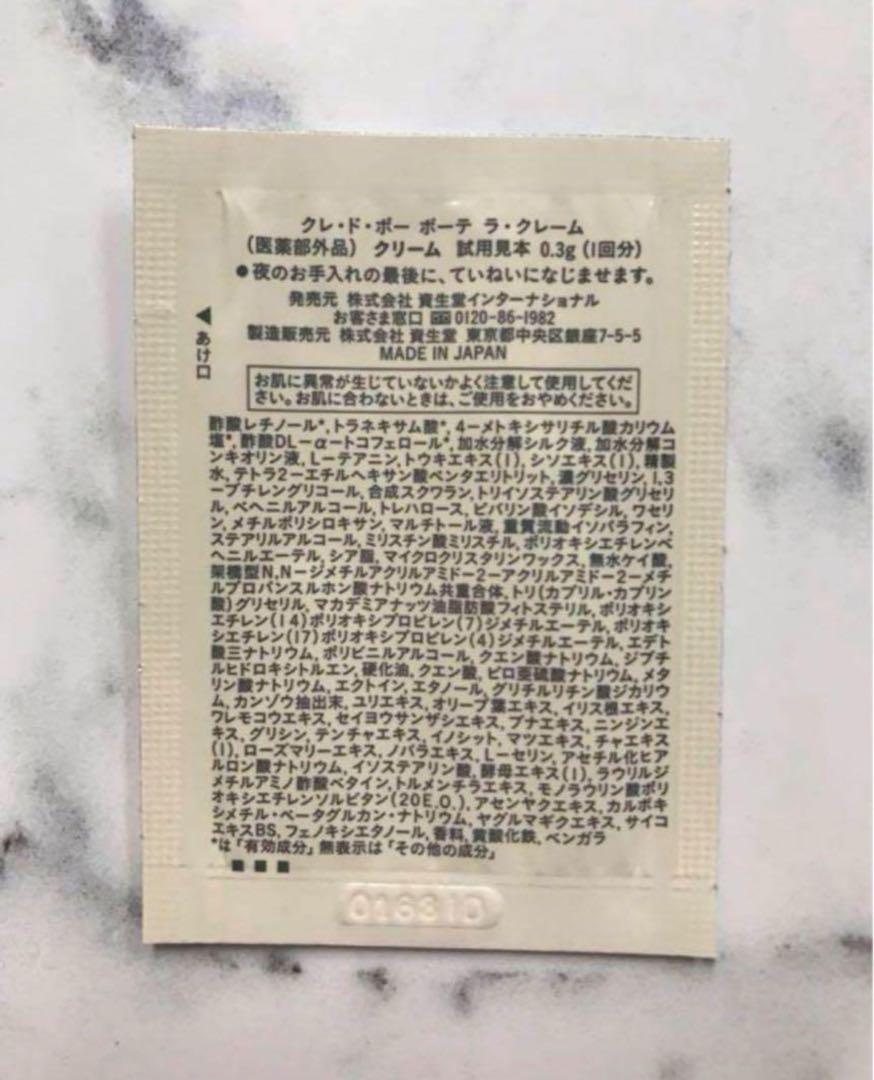 クレ・ド・ポー ボーテ ラ・クレーム
(医薬部外品) クリーム 試用見本 0.3g (1回分)
●夜のお手入れの最後に、ていねいになじませます。
発売元 株式会社 資生堂インターナショナル
お客さま窓口 0120-86-1982
製造販売元 株式会社 資生堂 東京都中央区銀座7-5-5
MADE IN JAPAN
◀あけ口
お肌に異常が生じていないかよく注意して使用してくだ
さい。お肌に合わないときは、ご使用をおやめください。
酢酸レチノール*, トラネキサム酸*, 4−メトキシサリチル酸カリウム
塩*, 酢酸DL−α−トコフェロール*, 加水分解シルク液, 加水分解コ
ンキオリン液, L−テアニン, トウキエキス(1), シソエキス(1), 精製
水, テトラ2−エチルヘキサン酸ペンタエリトリット, 濃グリセリン, 1,3
−ブチレングリコール, 合成スクワラン, トリイソステアリン酸グリセリ
ル, ベヘニルアルコール, トレハロース, ピバリン酸イソデシル, ワセリ
ン, メチルポリシロキサン, マルチトール液, 重質流動イソパラフィン,
ステアリルアルコール, ミリスチン酸ミリスチル, ポリオキシエチレンベ
ヘニルエーテル, シア脂, マイクロクリスタリンワックス, 無水ケイ酸,
架橋型N,N−ジメチルアクリルアミド−2−アクリルアミド−2−メチ
ルプロパンスルホン酸ナトリウム共重合体, トリ(カプリル・カプリン
酸)グリセリル, マカデミアナッツ油脂肪酸フィトステリル, ポリオキシ
エチレン(14)ポリオキシプロピレン(7)ジメチルエーテル, ポリオキ
シエチレン(17)ポリオキシプロピレン(4)ジメチルエーテル, エデト
酸三ナトリウム, ポリビニルアルコール, クエン酸ナトリウム, ジブチ
ルヒドロキシトルエン, 硬化油, クエン酸, ピロ亜硫酸ナトリウム, メタ
リン酸ナトリウム, エクトイン, エタノール, グリチルリチン酸ジカリウ
ム, カンゾウ抽出末, ユリエキス, オリーブ葉エキス, イリス根エキス,
ワレモコウエキス, セイヨウサンザシエキス, ブナエキス, ニンジンエ
キス, グリシン, テンチャエキス, イノシット, マツエキス, チャエキス
(1), ローズマリーエキス, ノバラエキス, L−セリン, アセチル化ヒア
ルロン酸ナトリウム, イソステアリン酸, 酵母エキス(1), ラウリルジ
メチルアミノ酢酸ベタイン, トルメンチラエキス, モノラウリン酸ポリ
オキシエチレンソルビタン(20E.O.), アセンヤクエキス, カルボキ
シメチル・ベータグルカン・ナトリウム, ヤグルマギクエキス, サイコ
エキスBS, フェノキシエタノール, 香料, 黄酸化鉄, ベンガラ
*は「有効成分」無表示は「その他の成分」